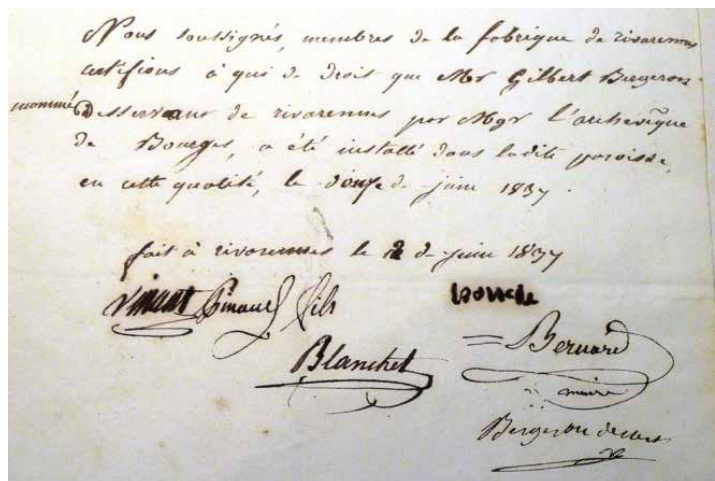 Nous soussignés, membres de la fabrique de rivarennes
certifions à qui de droit que Mr Gilbert Bergeron
nommé desservant de rivarennes par Mgr l'archevêque
de Bourges, a été installé dans ladite paroisse,
en cette qualité, le douze de juin 1837.
fait à rivarennes le 2 de juin 1837
vincent Pinaud fils
Blanchet
Bernard
maire
Bergeron